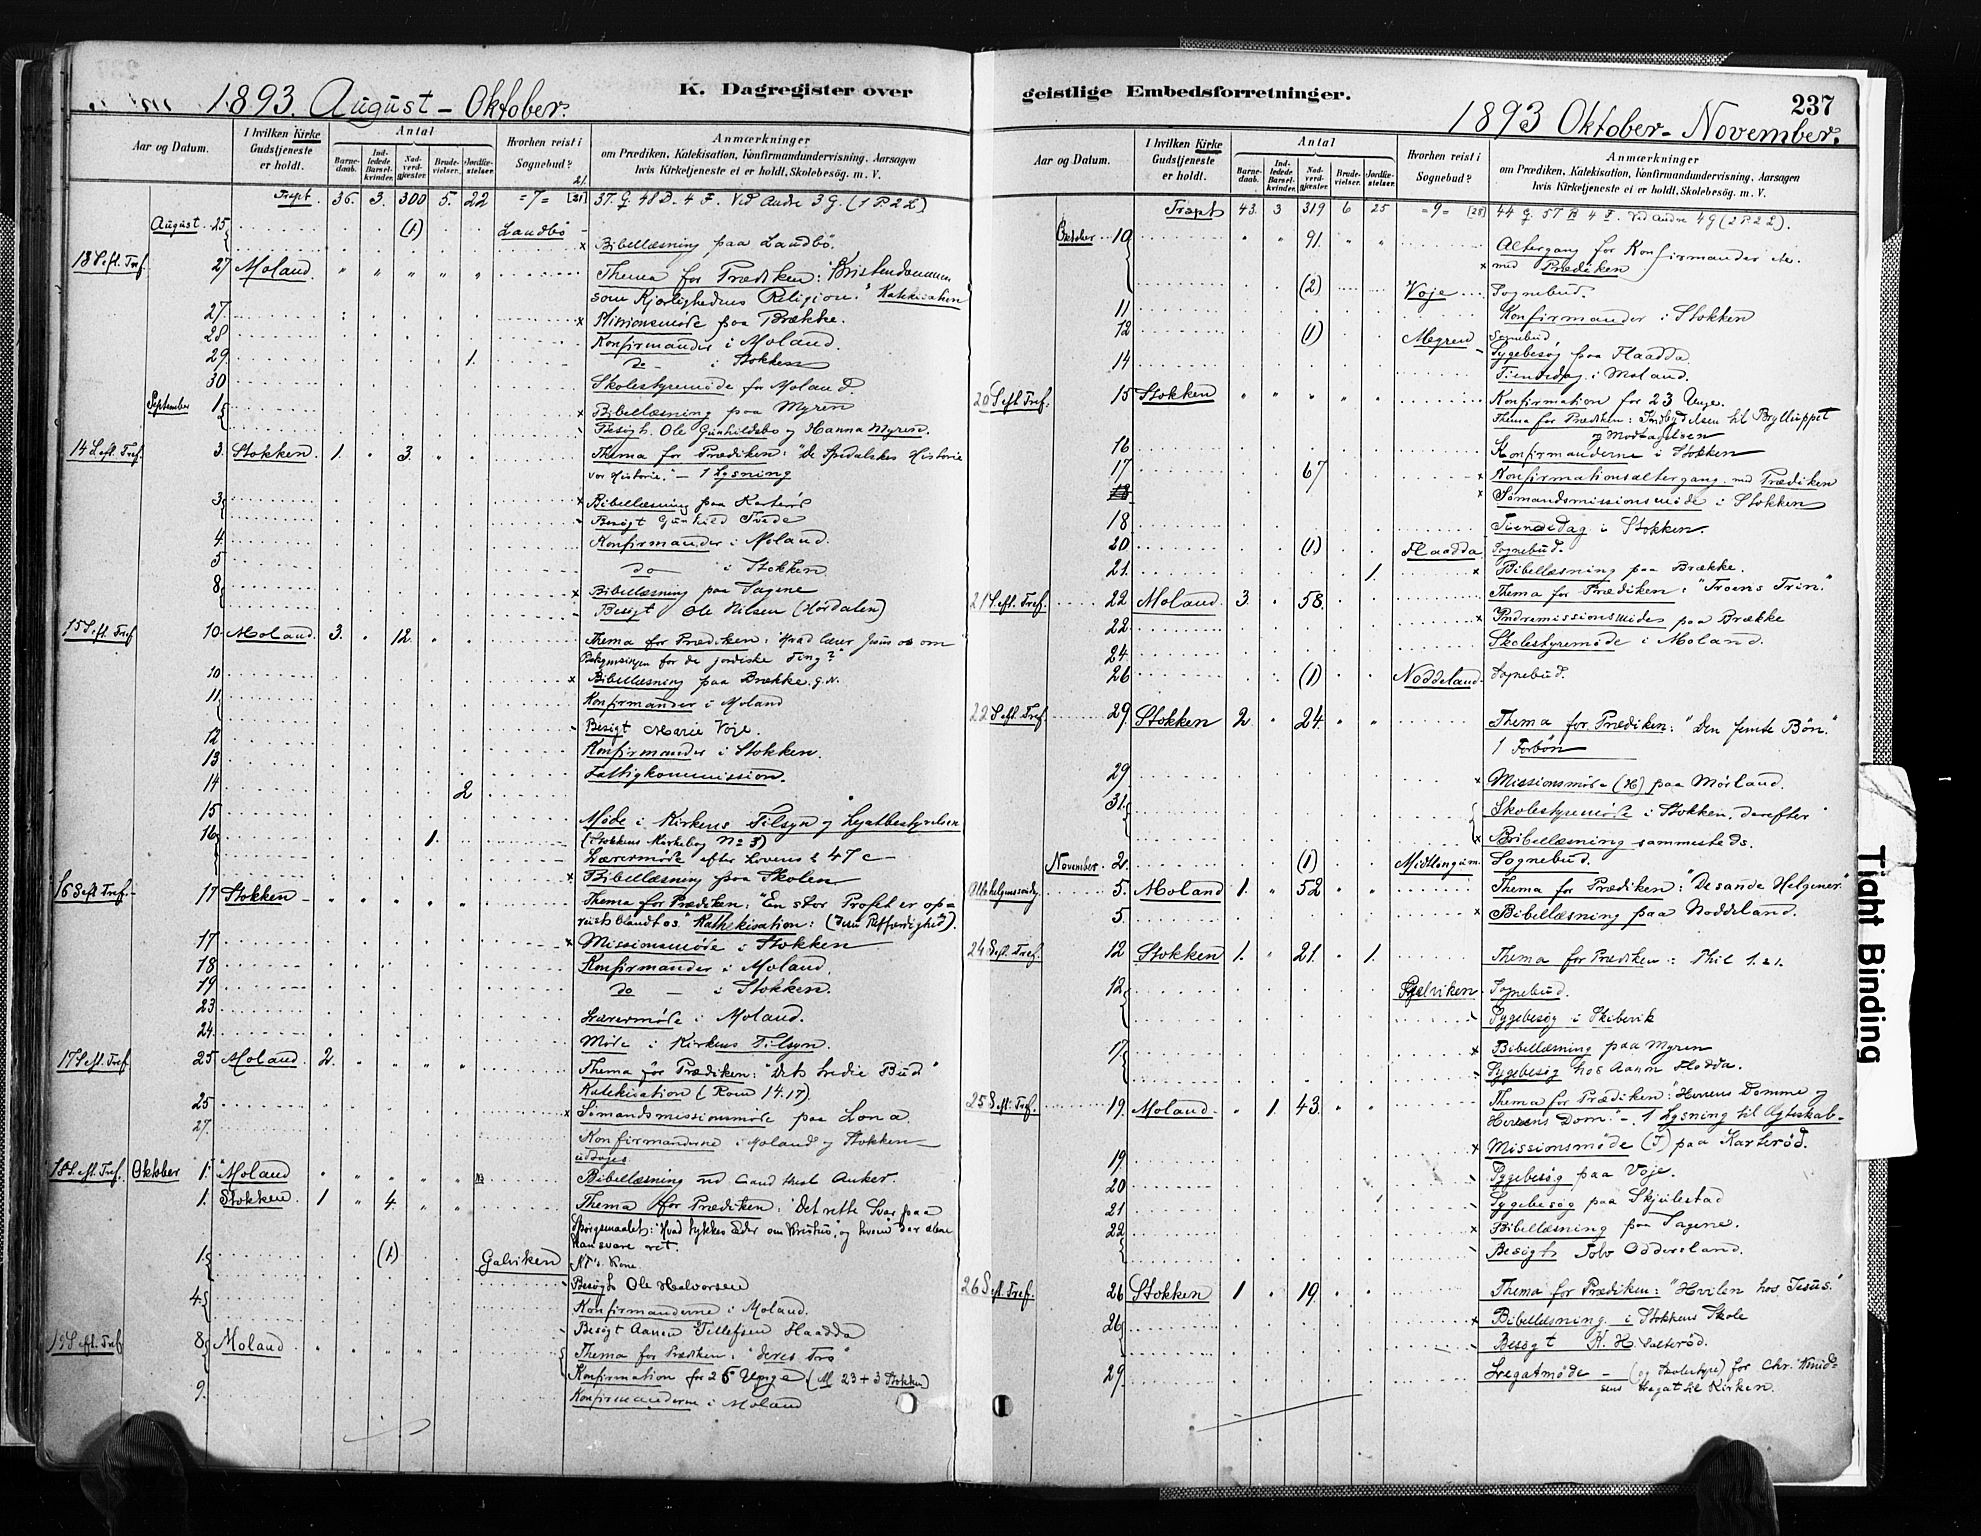 1893. August - Oktober.
K. Dagregister over
Aar og Datum.
I hvilken Kirke Gudstjeneste er holdt.
Antal
Barnedaab.
Indledede Barselkvinder.
Nadverdgjester.
Brudevielser.
Jordfæstelser.
Hvorhen reist i Sognebud?
Anmærkninger
om Prædiken, Katekisation, Konfirmandundervisning, Aarsagen
hvis Kirketjeneste ei er holdt, Skolebesøg. m. V.
Trspt. 36. 3. 300 5. 22 =7= 37. G. 48 B. 4 F. Vid Andre 3 G. (1 P 2 L)
August 25 (1) Landbö
Bibellæsning paa Landbö.
13 S. eft. Tref. 27 Moland " " " " " Thema for Prædiken: "Kristendommen
som Kjærlighedens Religion." Katekisation
27. Missionsmöde paa Brække.
28 Konfirmander i Moland.
29. 1. do - i Stokken
30 Skolestyremöde for Moland
September 1 Bibellæsning paa Myren
Besögt Ole Gunhildsbo og Hanna Myren.
14 S. eft. Tref. 3. Stokken. 1. " 3. " " Thema for Prædiken: "De Spedalskes Historie
vor Historie." - 1 Lysning
3 Bibellæsning paa
Besögt Gunhild Tvede
4. Konfirmander i Moland.
5 do i Stokken
8 Bibellæsning paa Sagene
Besögt Ole Nilsen (Hördalen)
15 S. eft. Tref. 10. Moland. 3. " 12. " " Thema for Prædiken: "Hvad lærer Jesus os om
Bekymringen for de jordiske Ting?"
10 Bibellæsning paa Brække. G. N.
11. Konfirmander i Moland
Besögt Marie Voje.
12 Konfirmander i Stokken.
13 Fattigkommission.
14 2
15 Möde i Kirkens Tilsyn og Legatbestyrelsen
16 1. (Stokkens Kirkebog No 3)
Lærermöde efter Lovens § 47 c
Bibellæsning paa Skolen
16 S. eft. Tref. 17 Stokken " " " " Thema for Prædiken: "En stor Profet er op=
reist blandt os." Kathekisation: (den Retfærdighed).
17 Missionsmöde i Stokken
18 Konfirmander i Moland.
19 do - i Stokken.
23 Lærermöde i Moland.
24 Möde i Kirkens Tilsyn.
17 S. eft. Tref 25 Moland. 2. " " " " Thema for Prædiken: "Det tredie Bud"
Katekisation (Rom 14.17)
25 Sömandsmissionsmöde paa Lona.
27. Konfirmanderne i Moland og Stokken
udtoges
18 S. eft. Tref. Oktober 1. Moland " " " " Bibellæsning ved Cand theol Anker.
1. Stokken. 1 " 4. " " Thema for Prædiken: Det rette Svar paa
Spörgsmaalet: "Hvad tykkes Eder om Kristus", og hvem der alene
kan svare ret.
1. (1) Galviken N T's Kone.
Besögt Ole Halvorsen
4 Konfirmanderne i Moland.
Besögt Aanon Tellefsen Flaadda
19 S. eft. Tref 8 Moland. " " " " Thema for Prædiken: "deres Tro"
Konfirmation for 26 Unge (M 23 + 3 Stokken)
9. Konfirmanderne i Moland
geistlige Embedsforretninger.
237
1893 Oktober - November.
Aar og Datum.
I hvilken Kirke Gudstjeneste er holdt.
Antal
Barnedaab.
Indledede Barselkvinder.
Nadverdgjester.
Brudevielser.
Jordfæstelser.
Hvorhen reist i Sognebud?
Anmærkninger
om Prædiken, Katekisation, Konfirmandundervisning, Aarsagen
hvis Kirketjeneste ei er holdt, Skolebesøg. m. V.
Trspt 43. 3 319 6 25 =9= 44 G. 57 B 4 F. Vid Andre 4 G (2 P 2 L).
Oktober 10 " " 91. " " Altergang for Konfirmander etc.
med Prædiken
(2) Voje Sognebud.
11 Konfirmander i Stokken
12 (1) Sognebud,
Sygebesög paa Flaadda.
14 Tiendedag i Moland.
20 S. eft. Tref. 15 Stokken " " " " " Konfirmation for 23 Unge.
Thema for Prædiken: Indbydelsen til Brylluppet
og Modtagelsen
16 Konfirmanderne i Stokken
17 67 Konfirmationsaltergang med Prædiken
18 Sömandsmissionsmöde i Stokken
18 Tiendedag i Stokken.
20 (1) Flaadda Sognebud.
21. 1. Bibellæsning paa Brække.
21 S. eft. Tref. 22 Moland. 3. " 58. Thema for Prædiken: "Troens Trin."
22 Indremissionsmöde paa Brække
24 Skolestyremöde i Moland.
26 (1) Noddeland. Sognebud.
22 S. eft. Tref. 29 Stokken 2 " 24. " " Thema for Prædiken: "Den femte Bön."
1 Forbön
29 Missionsmöde (H) paa Mörland.
31. Skolestyremöde i Stokken, derefter
Bibellæsning sammesteds.
November 2. (1) Sognebud.
Allehelgenssöndg. 5. Moland 1. " 52. " " Thema for Prædiken: "De sande Helgener."
5. Bibellæsning paa Noddeland.
24 S. eft. Tref. 12 Stokken 1. " 21. " 1. Thema for Prædiken: Phil 1.21.
12 Sognebud.
Sygebesög i Skibevik
17 Bibellæsning paa Myren
Sygebesög hos Aanon Flodda.
25 S. eft. Tref. 19. Moland. " 1. 43. " " Thema for Prædiken: "Herrens Domme og
Herrens Dom" - 1 Lysning til Ægteskab.
19 Missionsmöde (J) paa Karteröd.
20 Sygebesög paa Voje.
21 Sygebesög paa Skjulestad
22 Bibellæsning paa Sagene.
Besögt Tolv Oddersland.
26 S. eft. Tref. 26 Stokken 1 " 19. " " Thema for Prædiken: "Hvilen hos Jesus."
26 Bibellæsning i Stokkens Skole
Besögt K. H. Salteröd.
29. Legatmöde - (og Skolestyre) for Chr. Knud=
sens Legat til Kirken.
Tight Binding